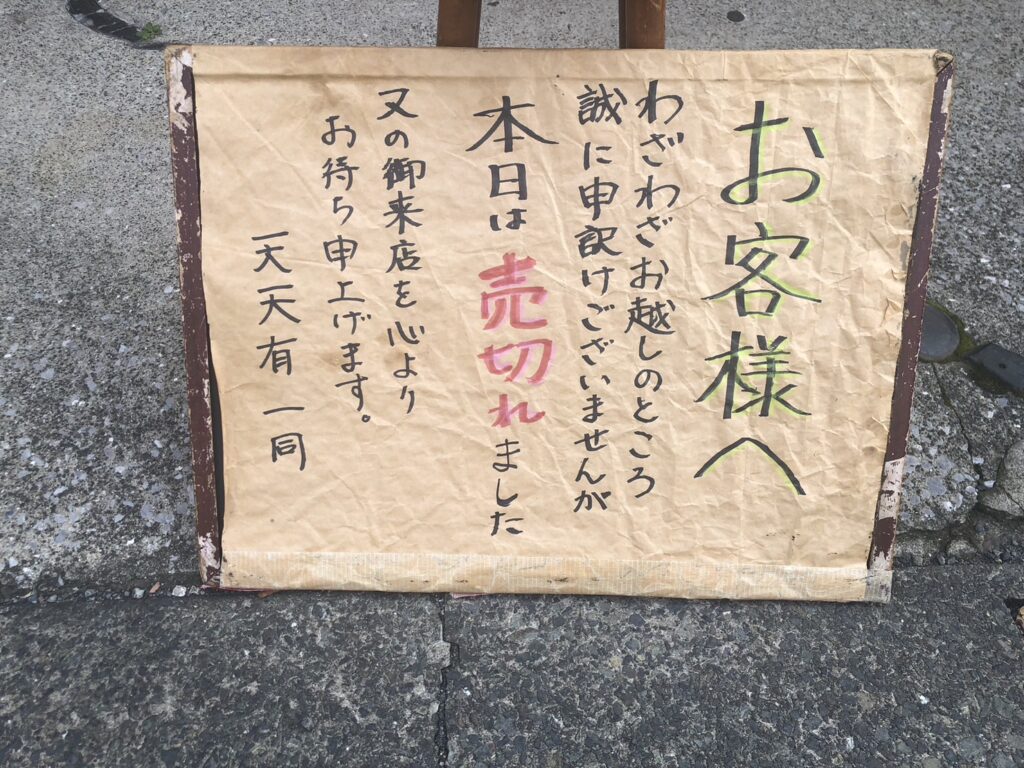 お客様へ
わざわざお越しのところ
誠に申訳けございませんが
本日は売切れました
又の御来店を心より
お待ち申上げます。
天天有 一同